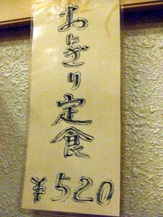 おにぎり定食
¥520